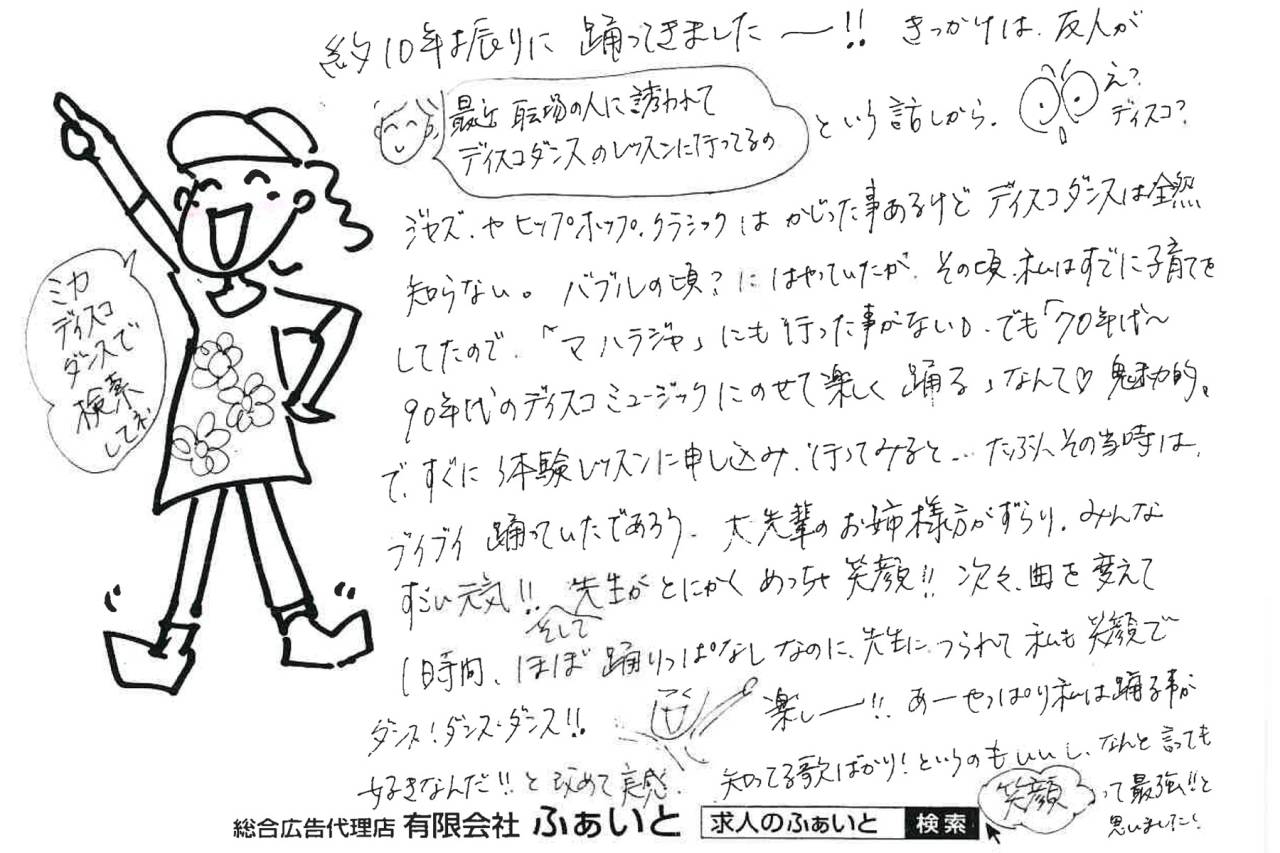 約10年振りに 踊ってきました〜!! きっかけは、友人が
最近 職場の人に誘われて
ディスコダンスのレッスンに行ってるの
という話しから。
え?
ディスコ?
ジャズ、や ヒップホップ、クラシックは かじった事あるけど ディスコダンスは全然
知らない。 バブルの頃?にはやっていたが、その頃、私はすでに子育てを
してたので、「マハラジャ」にも行った事がない。でも「70年代〜
90年代のディスコミュージックにのせて楽しく 踊る」なんて♡ 魅力的。
で、すぐに体験レッスンに申し込み、行ってみると… たぶん、その当時は、
ブイブイ 踊っていたであろう、大先輩のお姉様方がずらり。みんな
すごい元気!! そして 先生がとにかく めっちゃ 笑顔!! 次々、曲を変えて
1時間、ほぼ踊りっぱなしなのに、先生に つられて 私も 笑顔で
ダンス!ダンス・ダンス!! 楽しー!! あーやっぱり私は踊る事が
好きなんだ!!と改めて実感。 知ってる歌ばかり!というのもいいし、なんと言っても
笑顔って最強!!と
思いました!
ミカ
ディスコ
ダンスで
検索
してね
総合広告代理店 有限会社 ふぁいと 求人のふぁいと 検索